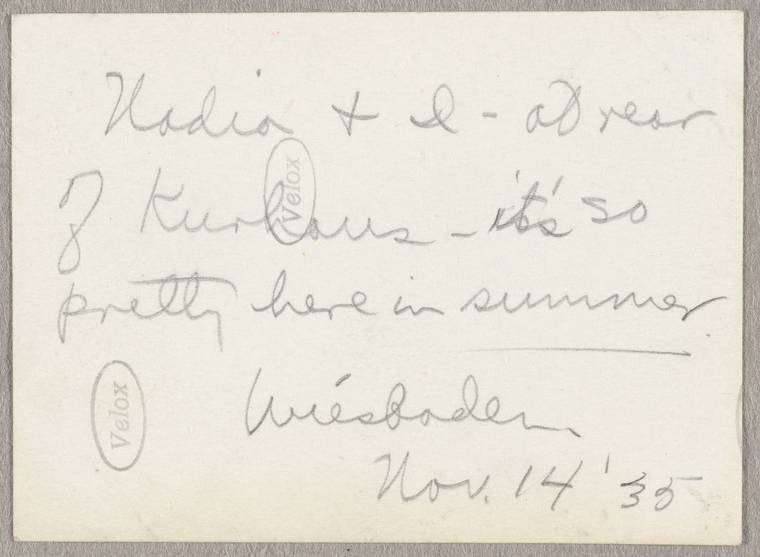 Nadia + I - at rear
of Kurhaus - it's so
pretty here in summer.
Wiesbaden
Nov. 14 '35
Velox
Velox